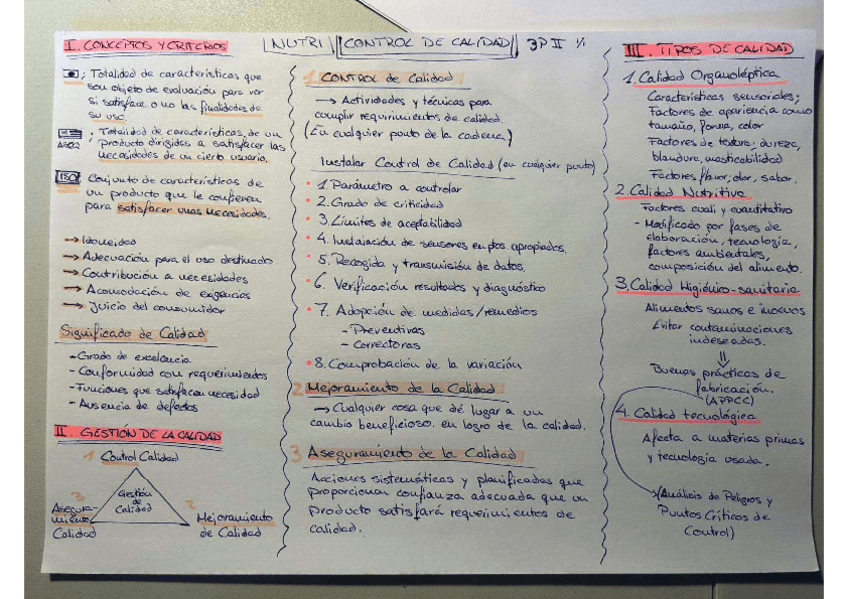 NUTRI CONTROL DE CALIDAD 3P II 1/1
I. CONCEPTOS Y CRITERIOS
: Totalidad de características que
son objeto de evaluación para ver
si satisface o no las finalidades de
su uso.
AECQ : Totalidad de características, de un
producto dirigidas a satisfacer las
necesidades de un cierto usuario.
ISO Conjunto de características de
un producto que le confieren
para satisfacer unas necesidades.
→ Idoneidad
→ Adecuación para el uso destinado
→ Contribución a necesidades
→ Acomodación de exigencias
→ Juicio del consumidor
Significado de Calidad
- Grado de excelencia.
- Conformidad con requerimientos
- Funciones que satisfacen necesidad
- Ausencia de defectos
II. GESTIÓN DE LA CALIDAD
1 Control Calidad
Gestión
de
Calidad
3
Asegura-
miento
Calidad
2
Mejoramiento
de Calidad
1. CONTROL de Calidad
→ Actividades y técnicas para
cumplir requirimientos de calidad.
(En cualquier punto de la cadena)
Instalar Control de Calidad (en cualquier punto)
• 1. Parámetro a controlar
• 2. Grado de criticidad
• 3. Límites de aceptabilidad
• 4. Instalación de sensores en ptos apropiados.
• 5. Recogida y transmisión de datos.
• 6. Verificación resultados y diagnóstico
• 7. Adopción de medidas/remedios
- Preventivas
- Correctoras
• 8. Comprobación de la variación
2 Mejoramiento de la Calidad
→ Cualquier cosa que dé lugar a un
cambio beneficioso en logro de la calidad.
3 Aseguramiento de la Calidad
Acciones sistemáticas y planificadas que
proporcionan confianza adecuada que un
producto satisfará requerimientos de
calidad.
III. TIPOS DE CALIDAD
1. Calidad Organoléptica
Características sensoriales;
Factores de apariencia como
tamaño, forma, color
Factores de textura; dureza,
blandura, masticabilidad
Factores flavor; olor, sabor.
2. Calidad Nutritiva
Factores cuali y cuantitativo
- Modificado por fases de
elaboración, tecnología,
factores ambientales,
composición del alimento.
3. Calidad Higiénico-sanitaria
Alimentos sanos e inocuos
Evitar contaminaciones
indeseadas.
Buenas prácticas de
fabricación.
(APPCC)
4. Calidad tecnológica
Afecta a materias primas
y tecnología usada.
(Análisis de Peligros y
Puntos Críticos de
Control)